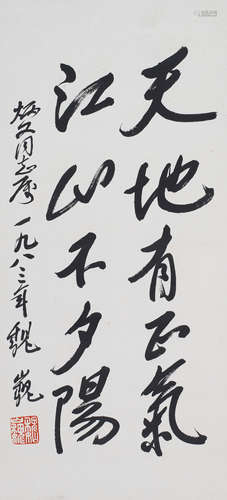 天地有正氣
江山不夕陽
同志属 一九八三年 魏巍